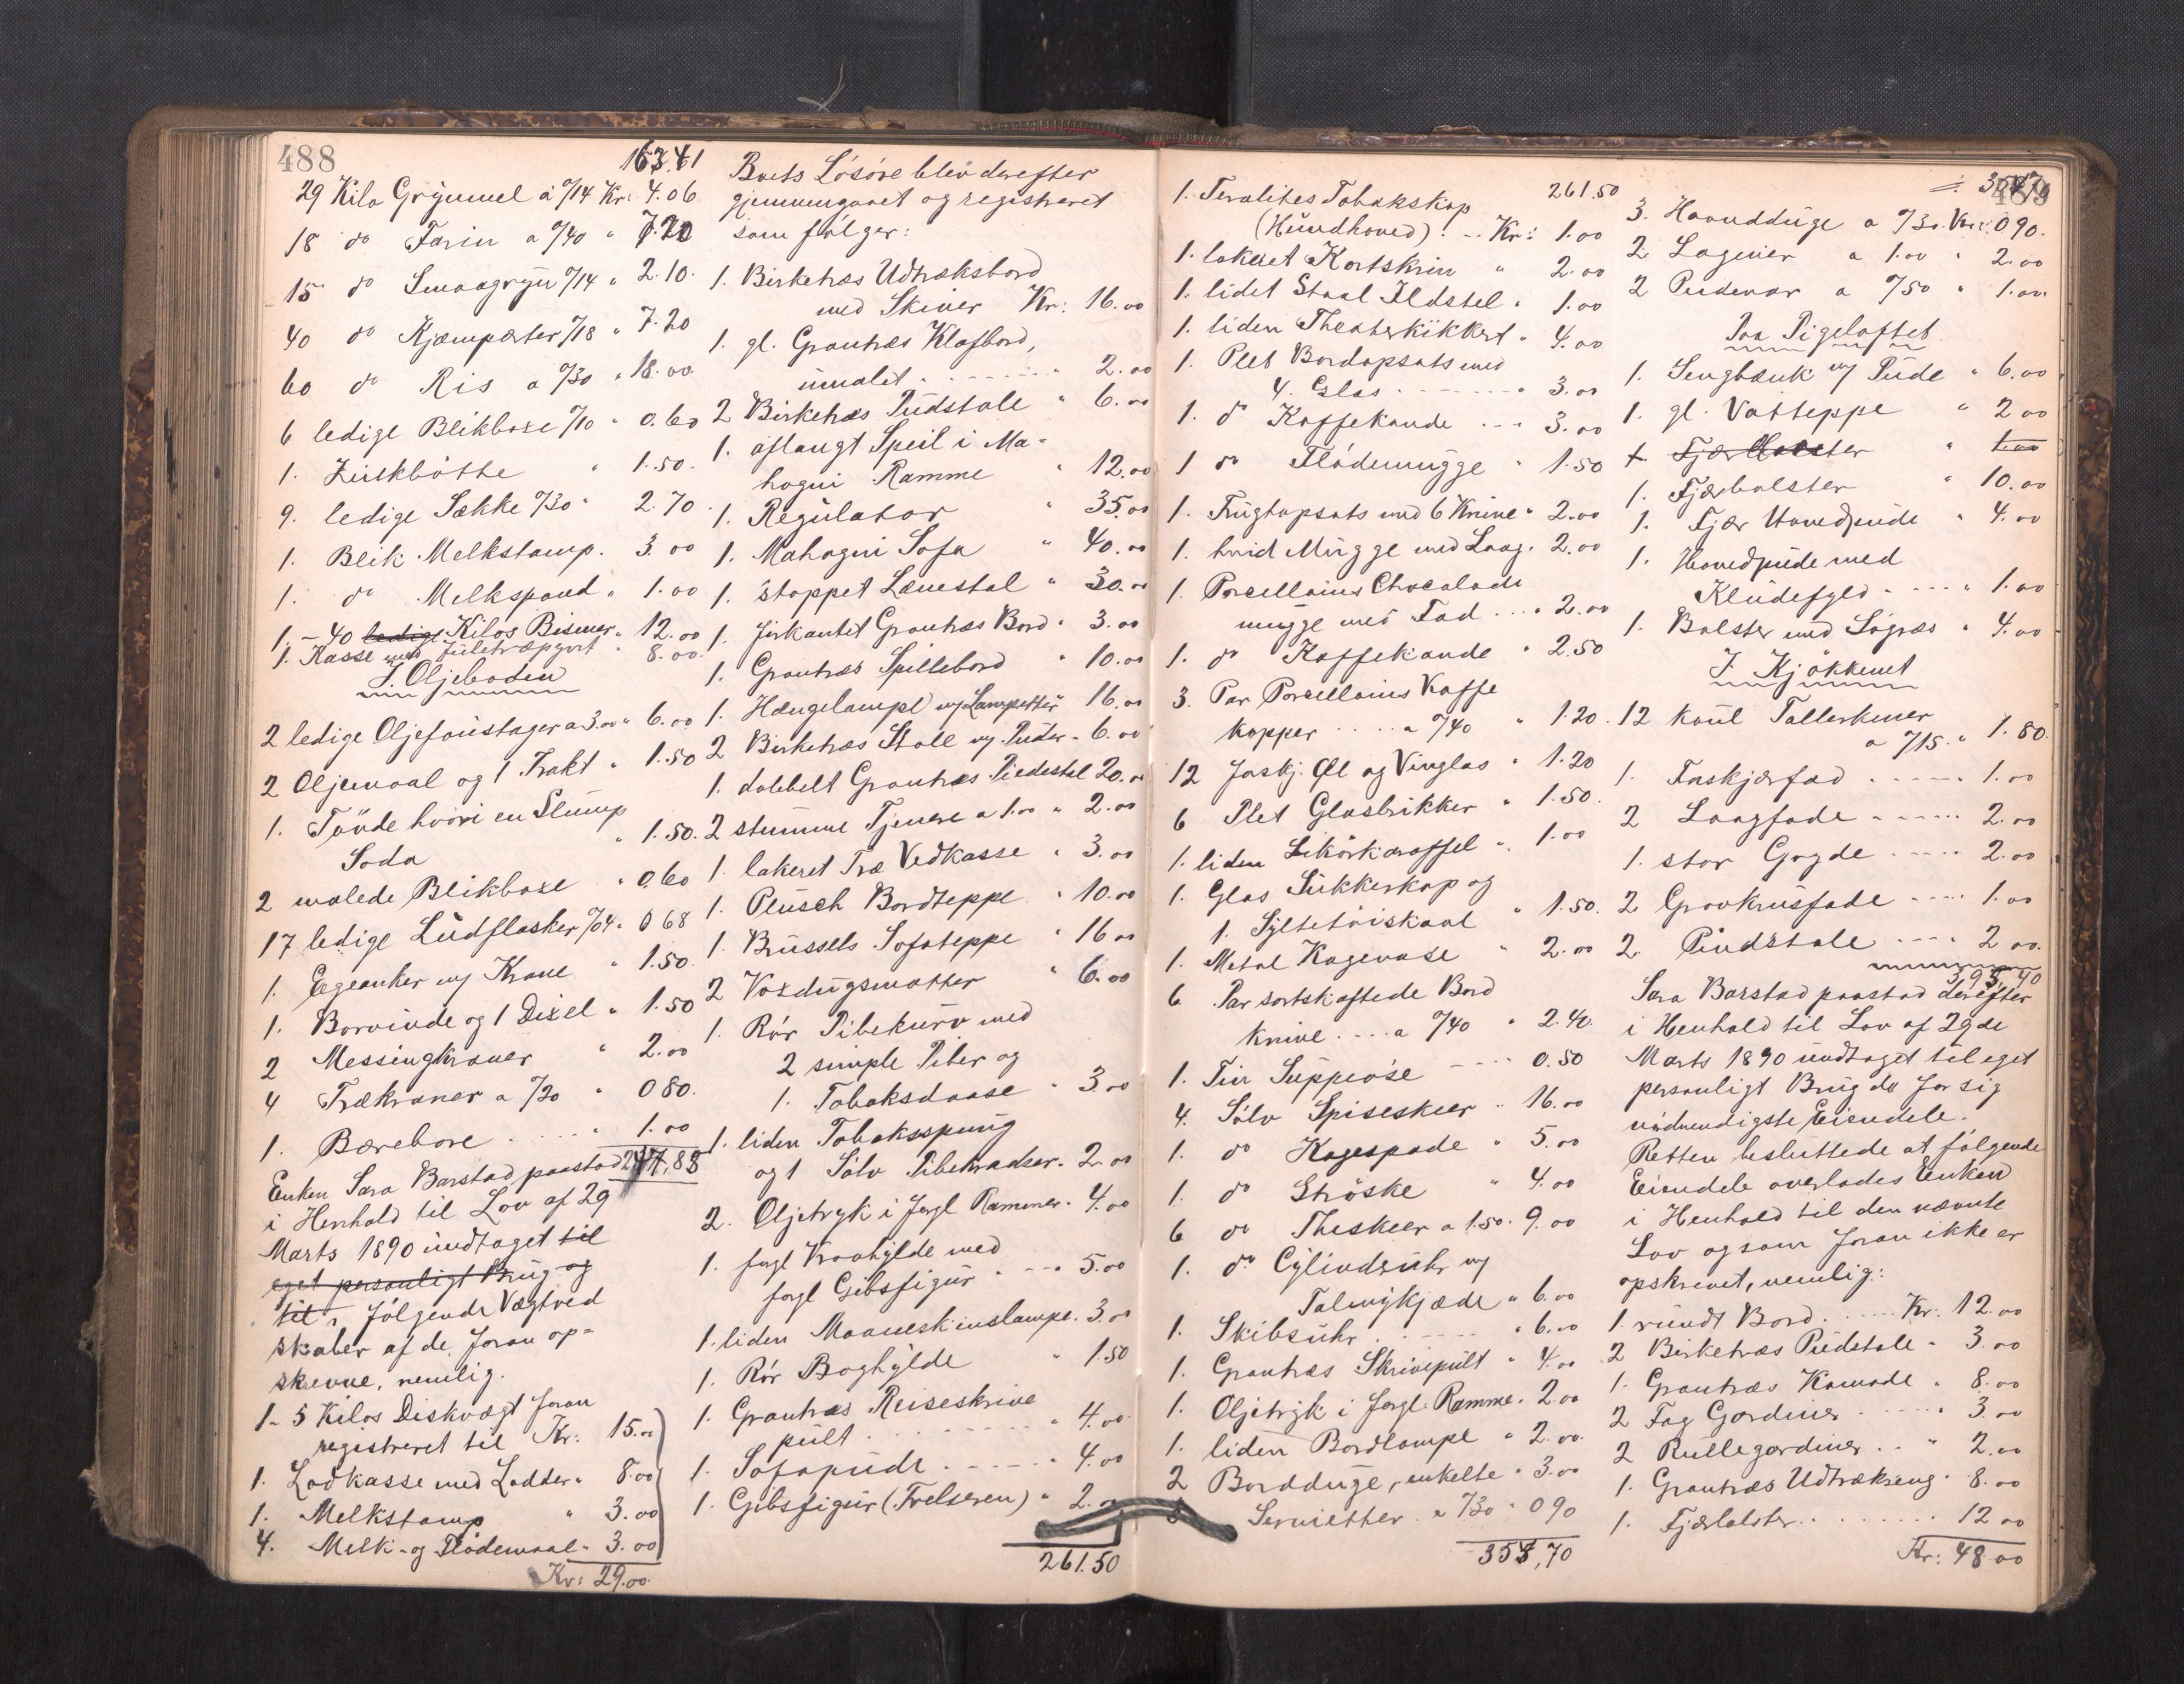 488
163.41
29 Kilo Grynmel à 0/14 Kr: 4.06
18 do Farin a 0/40 " 7.20
15 do Smaagryn 0/14 " 2.10.
40 do Kjæmpærter 0/18 " 7.20
60 do Ris a 0/30 " 18.00
6 ledige Blikboxe 0/10 " 0.60
1. Zinkbötte " 1.50.
9. ledige Sække 0/30 " 2.70
1. Blik Melkstamp. 3.00
1. do Melkspand " 1.00
1. – 40 ledige Kilos Bismer " 12.00
1. Kasse med Juletræpynt " 8.00.
I Oljeboden
2 ledige Oljefoustager a 3.00 " 6.00
2 Oljemaal og 1 Trakt " 1.50
1. Tönde hvori en Slump
Soda " 1.50.
2 malede Blikboxe " 0.60
17 ledige Ludflasker 0/04 " 0 68
1. Egeanker m/ Krane " 1.50.
1. Borvinde og 1 Dixel " 1.50
2 Messingkraner " 2.00
4 Trækraner a 0/20 " 0 80.
1. Bærebore " 1.00
247,85
Enken Sara Barstad paastod
i Henhold til Lov af 29
Marts 1890 undtaget til
eget personligt Brug og
til, følgende Vægtred
skaber af de foran op-
skrevne, nemlig.
1 – 5 Kilos Diskvægt foran
registreret til Kr: 15.00
1. Lodkasse med Lodder " 8.00
1. Melkstamp " 3.00
4. Melk- og Flödemaal " 3.00
Kr: 29.00
Boets Lösöre blev derefter
gjennemgaaet og registreret
som følger:
1. Birketræs Udtræksbord
med Skiver Kr: 16.00
1. gl. Grantræs Klafbord,
umalet " 2.00
2 Birketræs Pudstole " 6.00
1. aflangt Speil i Ma-
hogni Ramme " 12.00
1. Regulator " 35.00
1. Mahogni Sofa " 40.00
1. stoppet Lænestol " 30.00
1. firkantet Grantræs Bord " 3.00
1. Grantræs Spillebord " 10.00
1. Hængelampe m/ Lampetter 16.00
2 Birketræs Stole m/ Puder " 6.00
1. dobbelt Grantræs Piedestal 20.00
2 stumme Tjenere a 1.00 " 2.00
1. lakeret Træ Vedkasse " 3.00
1. Plusch Bordteppe " 10.00
1. Brussels Sofateppe " 16 00
2 Voxdugsmatter " 6.00
1. Rör Pibekurv med
2 simple Piber og
1. Tobaksdaase " 3 00
1. liden Tobakspung
og 1 Sölv Pibekradser " 2.00
2. Oljetryk i forgl Rammer " 4.00
1. forgl Kraahylde med
forgl Gibsfigur " 5.00
1. liden Maaneskinslampe " 3.00
1. Rör Boghylde " 1.50
1. Grantræs Reiseskrive
pult " 4.00
1. Sofapude " 4.00
1. Gibsfigur (Frelseren) " 2.00
261.50
261.50
1. Teralites Tobakskop
(Hundhoved) Kr: 1.00
1. lakeret Kortskrin " 2.00
1. lidet Staal Ildstel " 1.00
1. liden Theaterkikkert " 4.00
1. Plet Bordopsats med
4. Glas " 3.00
1. do Kaffekande " 3.00
1 do Flödemugge " 1.50
1. Frugtopsats med 6 Knive " 2.00
1. hvid Mugge med Laag " 2.00
1. Porcellains Chocolade
mugge med Fad " 2.00
1. do Kaffekande " 2.50
3. Par Porcellains Kaffe
kopper a 0/40 " 1.20.
12 forskj. Øl og Vinglas " 1.20
6 Plet Glasbrikker " 1.50.
1. liden Likörkaraffel " 1.00
1. Glas Sukkerkop og
1. Syltetöiskaal " 1.50.
1. Metal Kagevase " 2.00
6. Par sortskaftede Bord
knive a 0/40 " 2.40.
1. Tin Suppeöse 0.50
4. Sölv Spiseskeer " 16.00
1. do Kagespade " 5.00
1. do Ströske " 4.00
6 do Theskeer a 1.50. 9.00
1. do Cylinderuhr m/
Talmykjæde " 6.00
1. Skibsuhr " 6.00
1. Grantræs Skrivepult " 4.00
1. Oljetryk i forgl. Ramme " 2.00
1. liden Bordlampe " 2.00.
2 Bordduge, enkelte " 3.00
3 Servietter a 0/30 " 0 90
353,70
489
3. Haandduge a 0/30. Kr: 0 90.
2 Lagener a 1.00 " 2.00
2 Pudevar a 0/50 " 1.00
Paa Pigeloftet
1. Sengbænk m/ Pude " 6.00
1. gl. Vatteppe " 2 00
1. Fjærbolster "
1. Fjærbolster " 10.00
1. Fjær Hovedpude " 4.00
1. Hovedpude med
Kludefyld " 1.00
1. Bolster med Sögræs " 4.00
I Kjökkenet
12 hvid Tallerkener
a 0/15 " 1.80.
1. Faskjærfad 1.00
2 Laagfade 2.00
1. stor Gryde 2.00
2 Gravkrusfade 1.00
2. Pindstole 2 00.
393,40
Sara Barstad paastod derefter
i Henhold til Lov af 29de
Marts 1890 undtaget til eget
personligt Brug de for sig
nödvendigste Eiendele.
Retten besluttede at følgende
Eiendele overlades Enken
i Henhold til den nævnte
Lov og som foran ikke er
opskrevet, nemlig:
1. rundt Bord Kr: 12.00
2 Birketræs Pudstole " 3.00
1. Grantræs Komode " 8.00
2 Fag Gardiner " 3.00
2 Rullegardiner " 2.00
1. Grantræs Udtrækseng " 8.00
1. Fjærbolster 12 00
Kr: 48.00